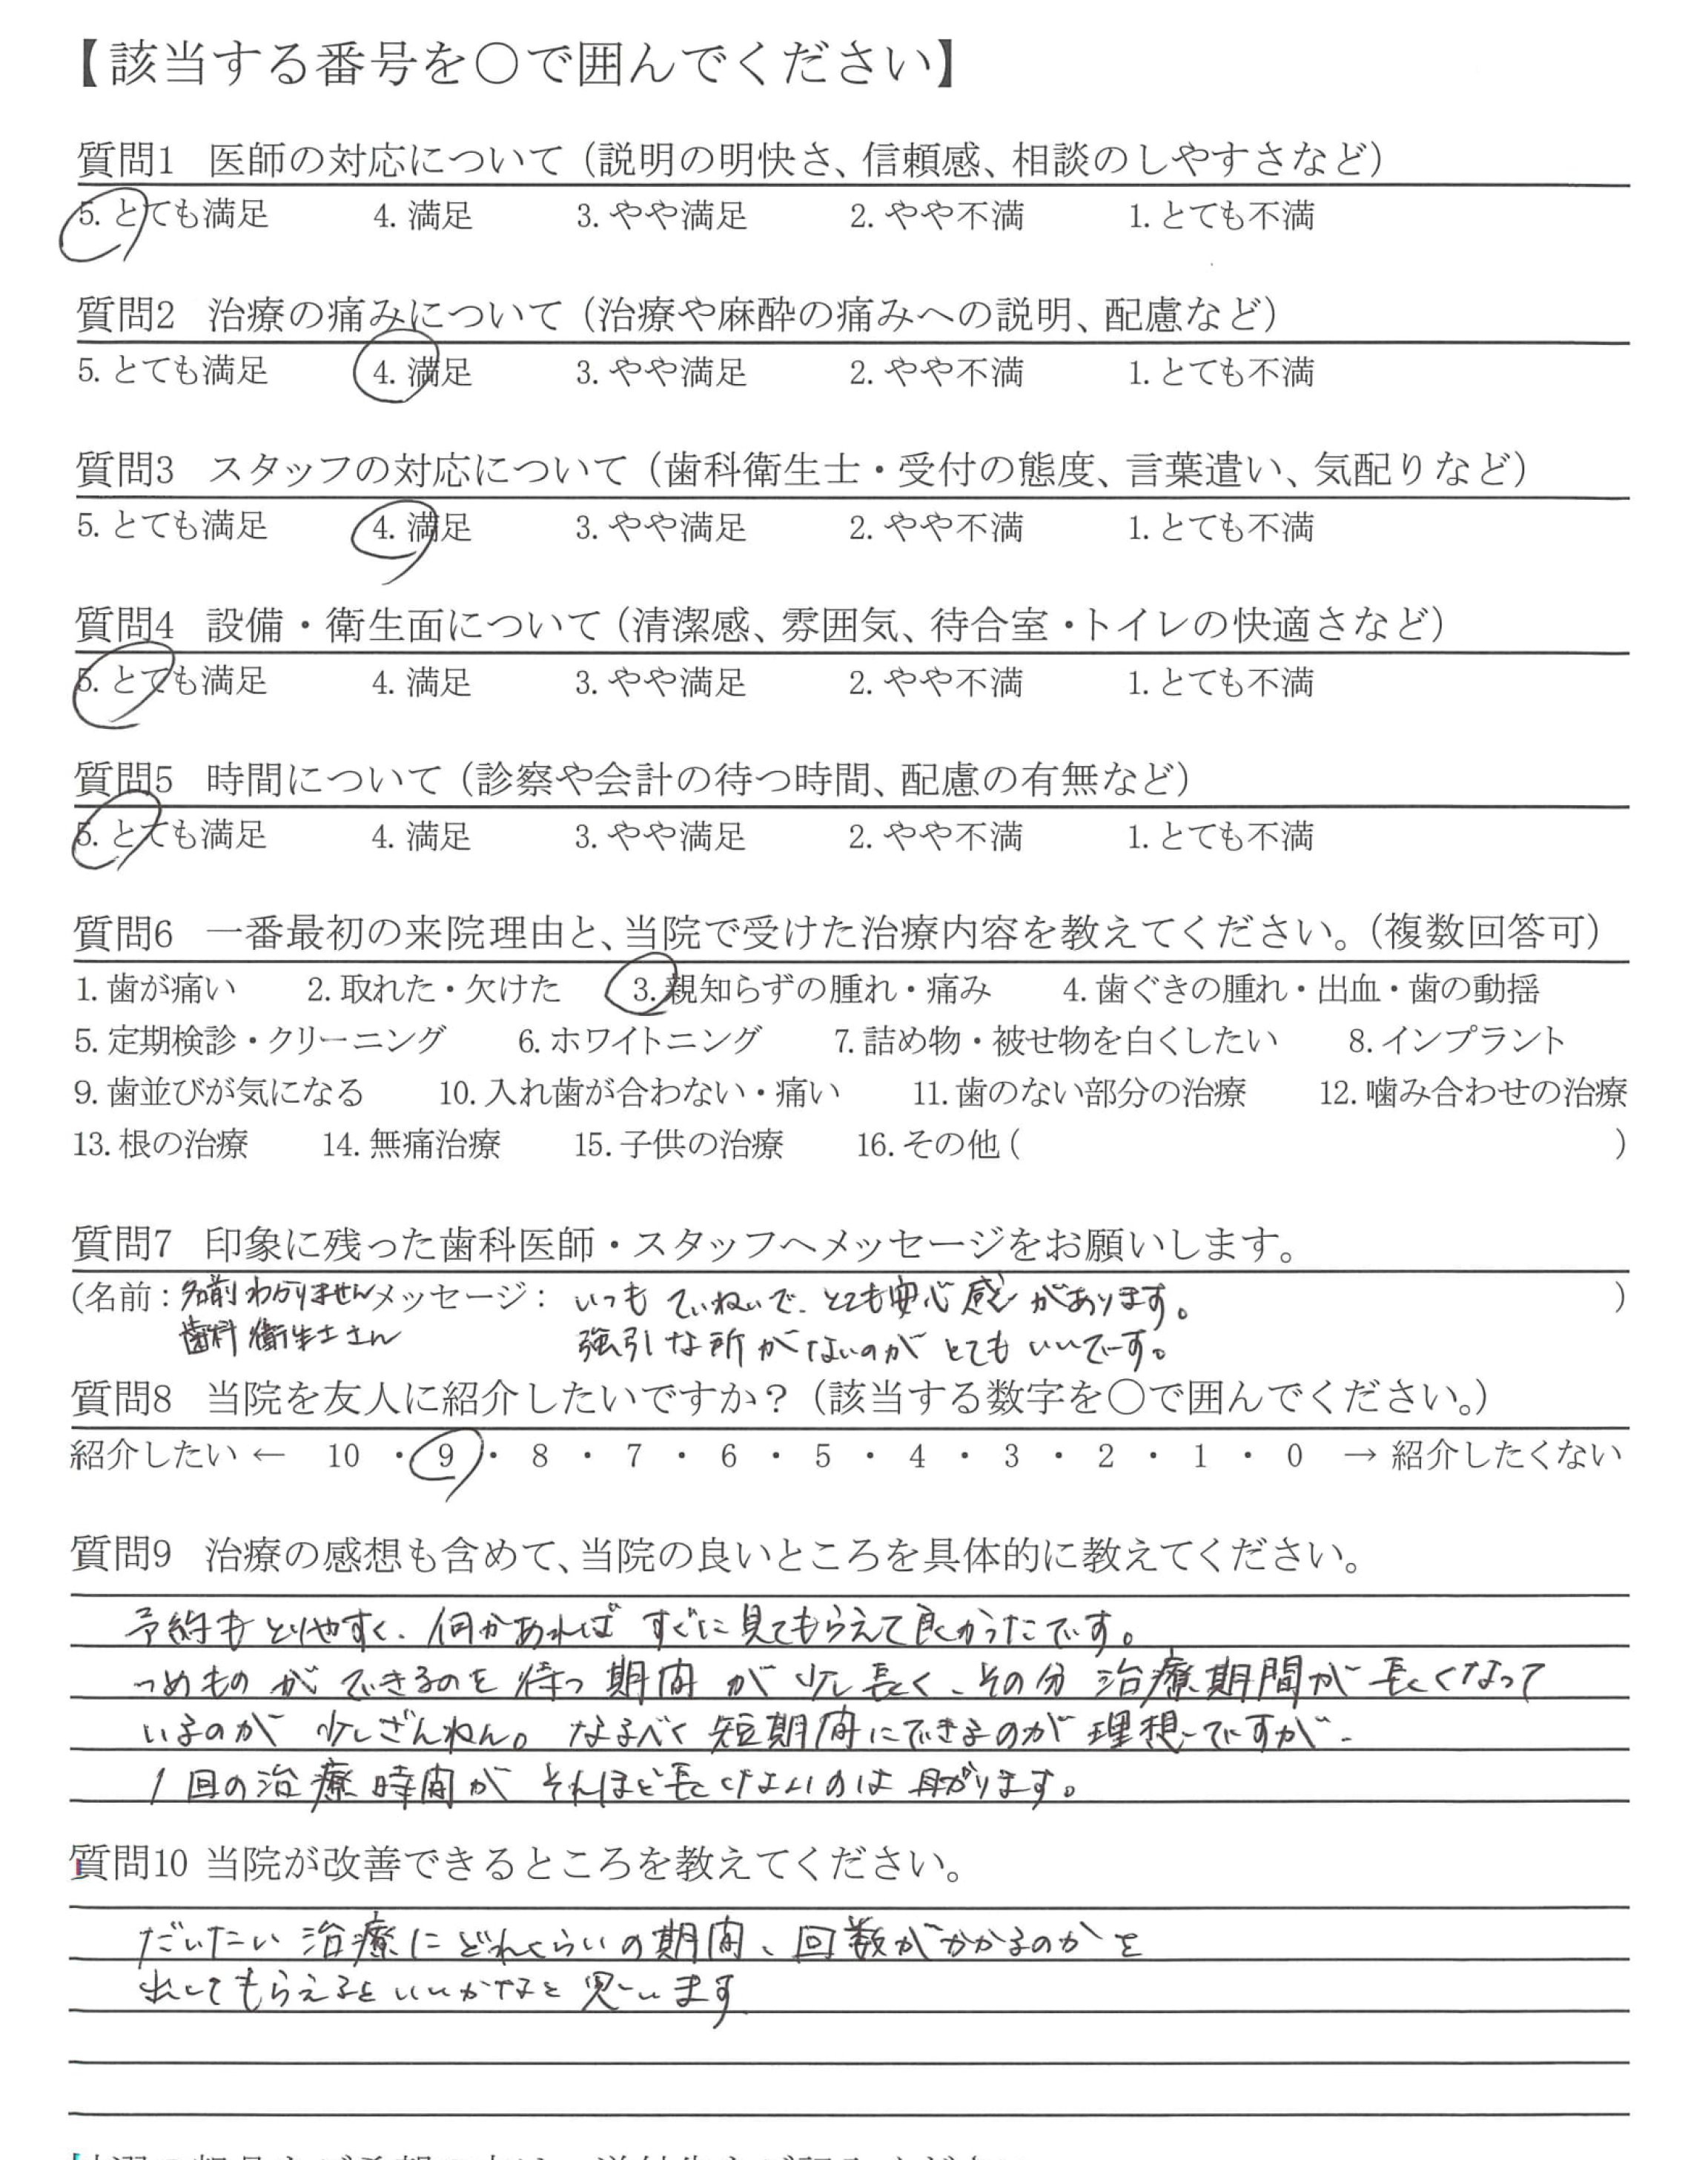 【該当する番号を〇で囲んでください】
質問1 医師の対応について（説明の明快さ、信頼感、相談のしやすさなど）
5. とても満足 4. 満足 3. やや満足 2. やや不満 1. とても不満
質問2 治療の痛みについて（治療や麻酔の痛みへの説明、配慮など）
5. とても満足 4. 満足 3. やや満足 2. やや不満 1. とても不満
質問3 スタッフの対応について（歯科衛生士・受付の態度、言葉遣い、気配りなど）
5. とても満足 4. 満足 3. やや満足 2. やや不満 1. とても不満
質問4 設備・衛生面について（清潔感、雰囲気、待合室・トイレの快適さなど）
5. とても満足 4. 満足 3. やや満足 2. やや不満 1. とても不満
質問5 時間について（診察や会計の待つ時間、配慮の有無など）
5. とても満足 4. 満足 3. やや満足 2. やや不満 1. とても不満
質問6 一番最初の来院理由と、当院で受けた治療内容を教えてください。（複数回答可）
1. 歯が痛い 2. 取れた・欠けた 3. 親知らずの腫れ・痛み 4. 歯ぐきの腫れ・出血・歯の動揺
5. 定期検診・クリーニング 6. ホワイトニング 7. 詰め物・被せ物を白くしたい 8. インプラント
9. 歯並びが気になる 10. 入れ歯が合わない・痛い 11. 歯のない部分の治療 12. 噛み合わせの治療
13. 根の治療 14. 無痛治療 15. 子供の治療 16. その他（ ）
質問7 印象に残った歯科医師・スタッフへメッセージをお願いします。
（名前：名前わかりません メッセージ： いつもていねいで、とても安心感があります。 ）
歯科衛生士さん 強引な所がないのがとてもいいです。
質問8 当院を友人に紹介したいですか？（該当する数字を〇で囲んでください。）
紹介したい ← 10 ・ 9 ・ 8 ・ 7 ・ 6 ・ 5 ・ 4 ・ 3 ・ 2 ・ 1 ・ 0 → 紹介したくない
質問9 治療の感想も含めて、当院の良いところを具体的に教えてください。
予約もとりやすく、何かあればすぐに見てもらえて良かったです。
つめものができるのを待つ期間が少し長く、その分治療期間が長くなって
いるのが少しざんねん。なるべく短期間にできるのが理想ですが、
1回の治療時間がそれほど長くないのは助かります。
質問10 当院が改善できるところを教えてください。
だいたい治療にどれくらいの期間、回数がかかるのかを
してもらえるといいかなと思います